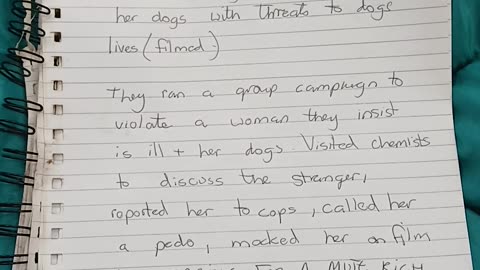 her dogs with threats to dogs
lives (filmed)
They ran a group campaign to
violate a woman they insist
is ill + her dogs. Visited chemists
to discuss the stranger,
reported her to cops, called her
a pedo, mocked her on film
FOR A MULTI RICH